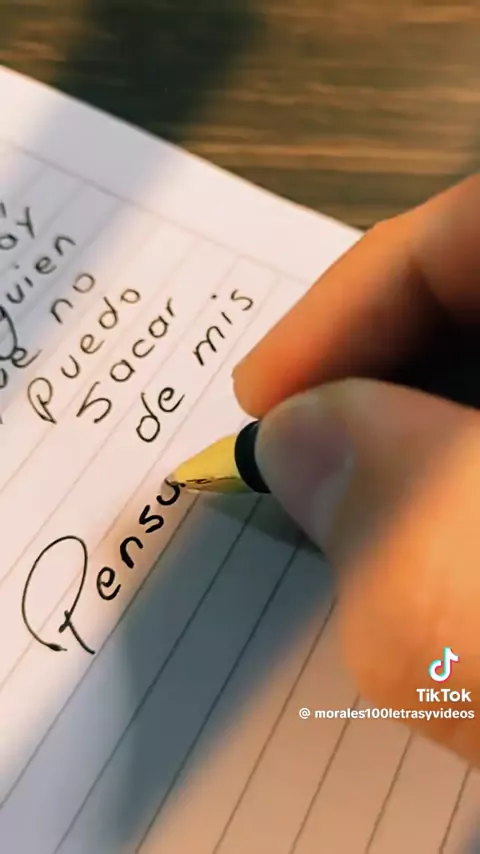 oy
guien
ue no
puedo
sacar
de mis
Pensa
TikTok
@ morales100letrasyvideos